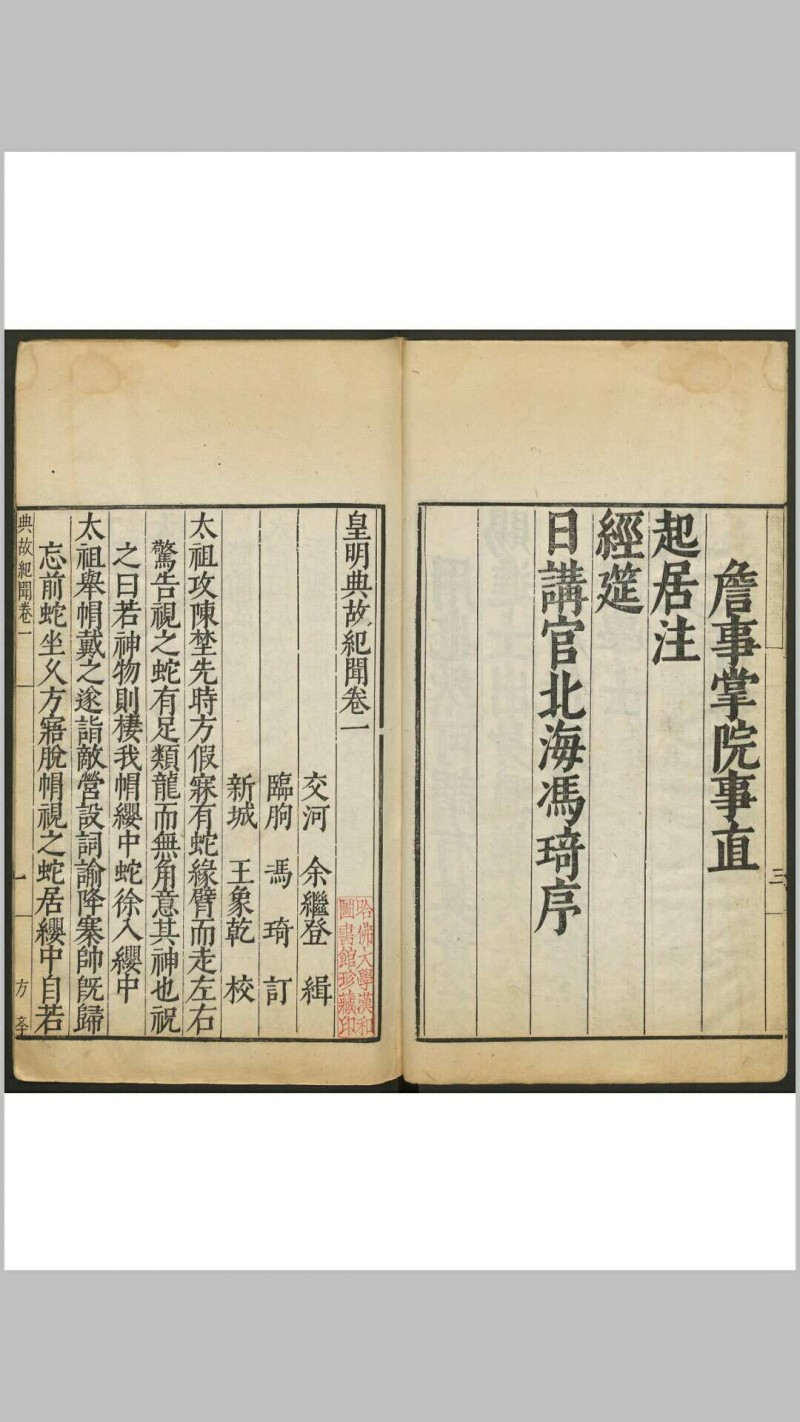 詹事掌院事直
起居注
經筵
日講官北海馮琦序
三
皇明典故紀聞卷一
交河 余繼登 緝
臨朐 馮琦 訂
新城 王象乾 校
太祖攻陳埜先時方假寐有蛇緣臂而走左右
驚告視之蛇有足類龍而無角意其神也祝
之曰若神物則棲我帽纓中蛇徐入纓中
太祖舉帽戴之遂詣敵營設詞諭降寨帥旣歸
忘前蛇坐久方寤脫帽視之蛇居纓中自若
典故紀聞卷一
一
方
哈佛大學漢和
圖書館珍藏印